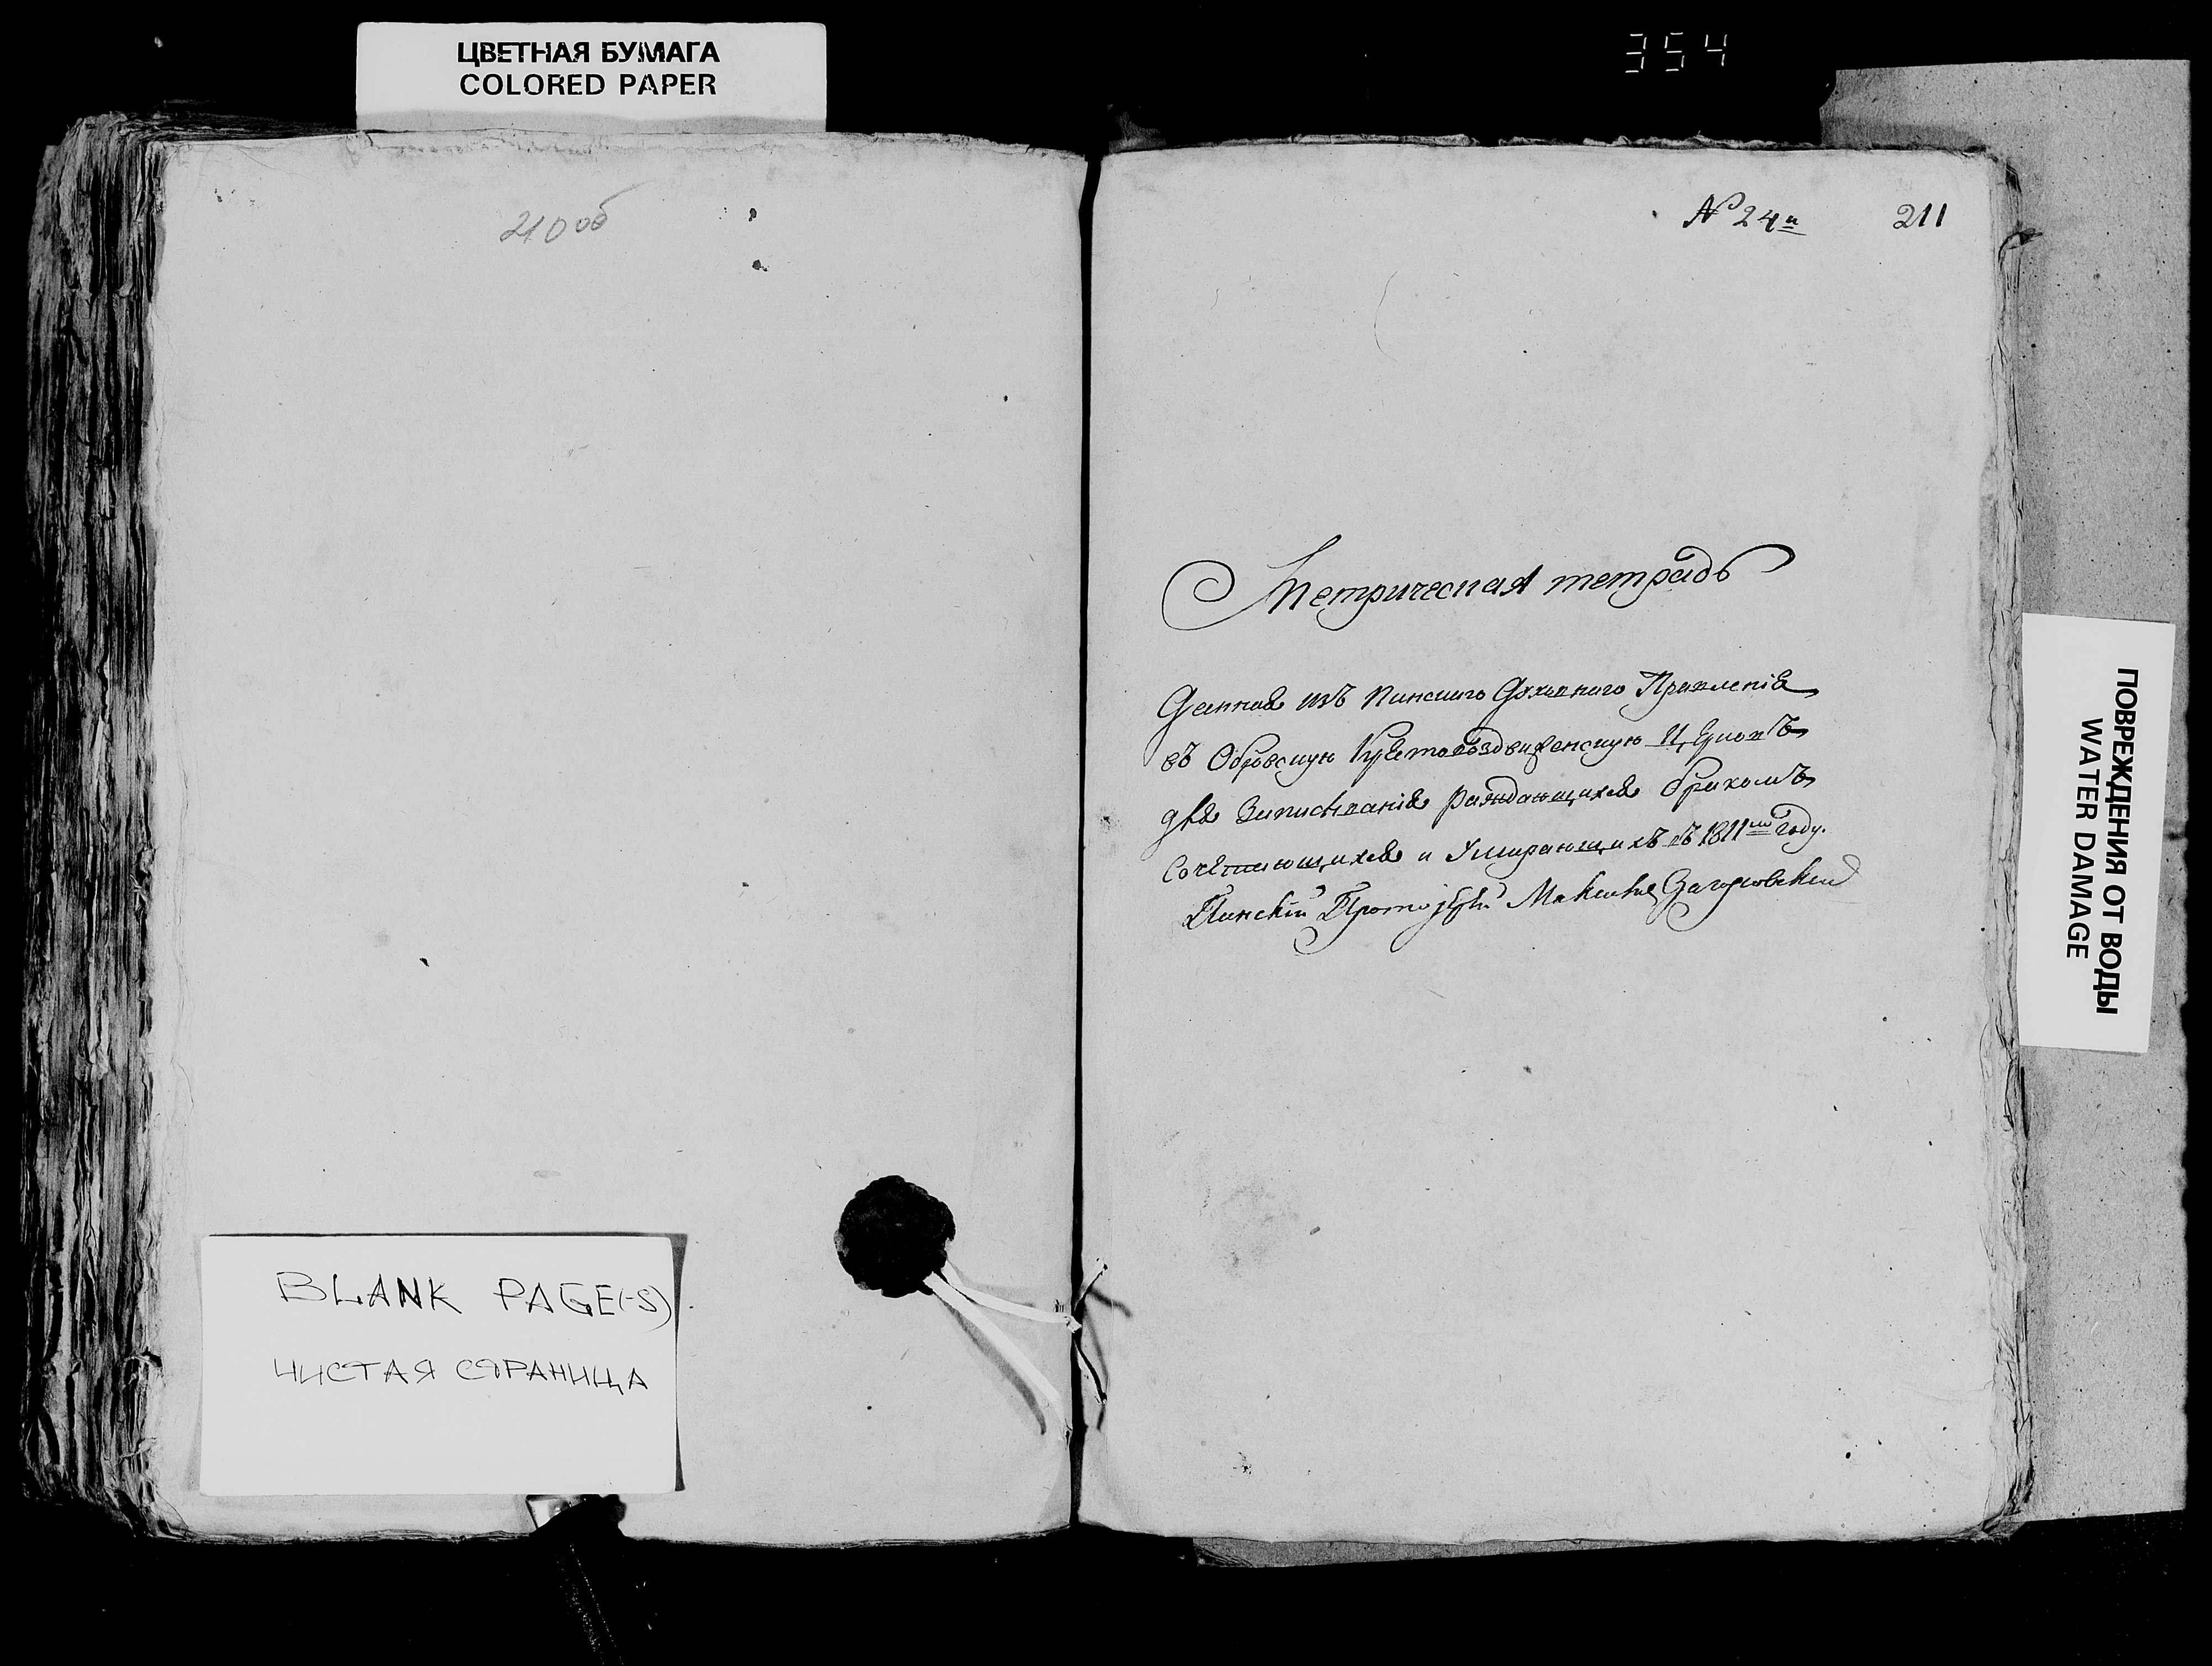 ЦВЕТНАЯ БУМАГА
COLORED PAPER
354
210 об
№ 24й
211
Метрическая тетрадь
Данная изъ Пинскаго Духовнаго Правленія
въ Обровскую Крестовоздвиженскую Церковь
для Записыванія Раждающихся бракомъ
Сочетающихся и Умирающихъ въ 1811мъ году.
Пинскій Протоіерей
ПОВРЕЖДЕНИЯ ОТ ВОДЫ
WATER DAMAGE
BLANK PAGE(-S)
ЧИСТАЯ СТРАНИЦА